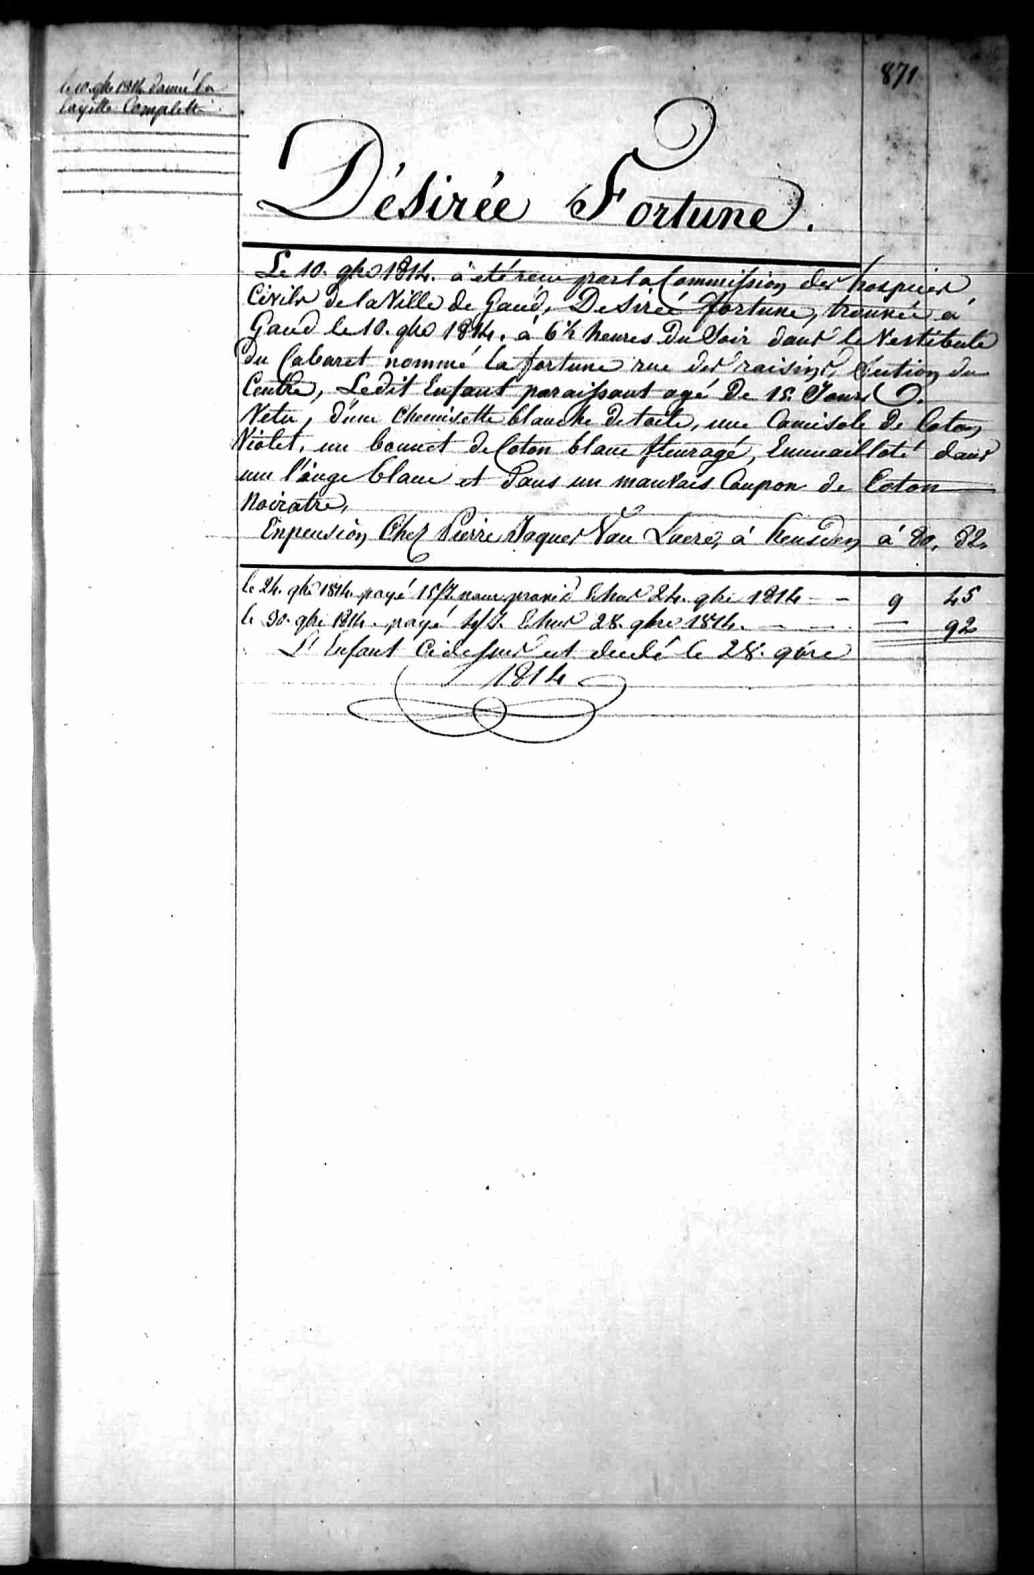 871
le 10. gbre 1814 donné la
layette Complette
Désirée Fortune.
Le 10. gbre 1814. à été reçu par la Commission des hospices
Civils de la Ville de Gand, Desirée fortune, trouvée à
Gand le 10. gbre 1814. à 6½ heures Du Soir dans le Vestibule
Du Cabaret nommé la fortune rue des raisins, Section du
Centre, Ledit Enfant paraissant agé De 15 Jours
Vetu, d'une Chemisette blanche de toile, une Camisole De Coton
Violet, un bonnet de Coton blanc fleuragé, Emmailloté dans
un l'ange blanc et dans un mauvais Coupon de Coton
Noiratre,
Enpension Chez Pierre Jaques Van Laere, à heusden à 80. 82.
le 24. gbre 1814. payé Echus 24. gbre 1814 - - 9 45
le 30. gbre 1814. payé Echus 28. gbre 1814. - - - 92
L'Enfant Cidessus est decedé le 28. gbre
1814